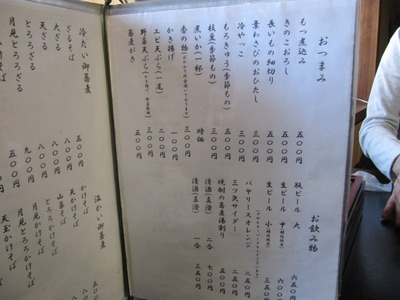 おつまみ
もつ煮込み 五〇〇円
きのこおろし 五〇〇円
長いもの細切り 五〇〇円
葉わさびのおひたし 五〇〇円
冷やっこ 三〇〇円
もろきゅう(季節もの) 五〇〇円
枝豆(季節もの) 三〇〇円
煮いか(一杯) 時価
香の物 三〇〇円
かき揚げ 一〇〇円
エビ天ぷら(一尾) 三〇〇円
野菜天ぷら 三〇〇円
蕎麦がき 五〇〇円
お飲み物
瓶ビール 大 六五〇円
生ビール 中
生ビール 小 三五〇円
バヤリースオレンジ 二五〇円
三ツ矢サイダー 二五〇円
焼酎の蕎麦湯割り 五〇〇円
清酒(真澄) 七〇〇円
清酒(真澄) 一合
冷たい御蕎麦
ざるそば 五〇〇円
大ざる 八〇〇円
天ざる 八〇〇円
とろろざる
月見とろろざる
温かい御蕎麦
かけそば
山菜そば
天ぷらそば
とろろかけそば
月見かけそば
天玉かけそば